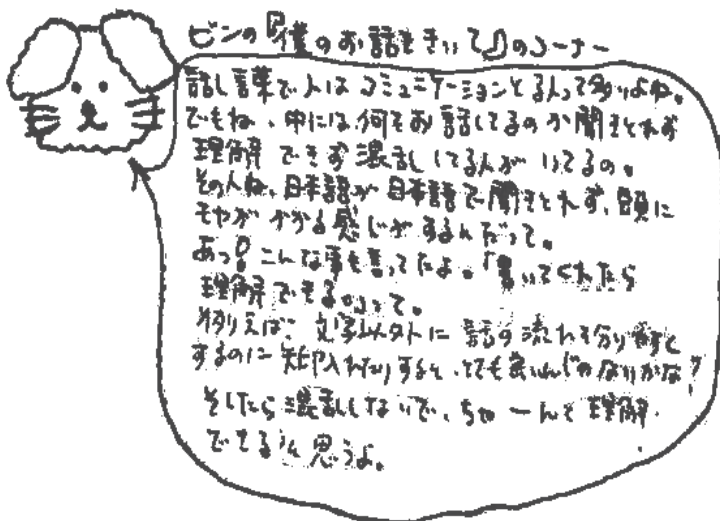 ビンの『僕のお話をきいて♪』のコーナー
話し言葉で人はコミュニケーションとる人って多いよね。
でもね、中には何をお話してるのか聞きとれず
理解できず混乱してる人がいてるの。
その人ね、日本語が日本語で聞きとれず、頭に
モヤがかかる感じがするんだって。
あっ!こんな事も言ってたよ。「書いてくれたら
理解できるのに」って。
例えば、文字以外に話の流れを分りやすく
するのに矢印入れたりすると、とても良いんじゃないかな?
そしたら混乱しないで、ちゃーんと理解
できると思うよ。